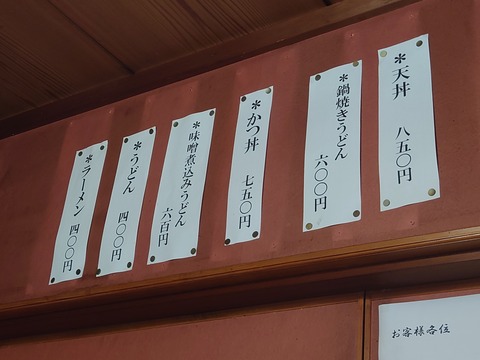 *天丼 八五〇円
*鍋焼きうどん 六〇〇円
*かつ丼 七五〇円
*味噌煮込みうどん 六百円
*うどん 四〇〇円
*ラーメン 四〇〇円
お客様各位